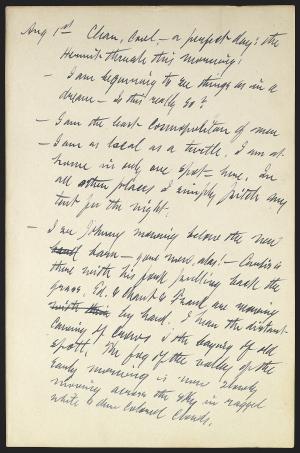 Aug 1st Clear, Cool – a perfect day; the
Hermit thrush this morning;
– I am beginning to see things as in a
dream – Is this really so?
– I am the least cosmopolitan of men
– I am as local as a turtle. I am at
home in only one spot – here. In
all other places I simply pitch my
tent for the night.
– I see Johnny mowing below the new
barn – gone now, alas! – Curtis is
there with his fork pulling back the
grass. Ed. & Chant & Frank are mowing
by hand. I hear the distant
Cawing of Crows & the baying of old
. The fog of the valley up the
early morning is now slowly
moving across the sky in ragged
white & dun colored clouds.